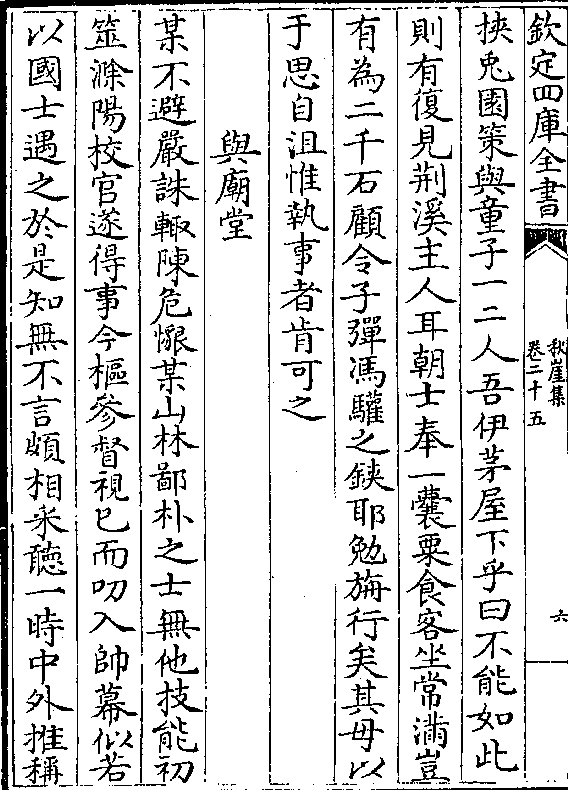 欽定四庫全書
秋崖集
卷二十五
六
挾兎園策與童子一二人吾伊茅屋下乎曰不能如此
則有復見荆溪主人耳朝士奉一囊粟食客坐常滿豈
有為二千石顧令子彈馮驩之鋏耶勉旃行矣其毋以
于思自沮惟執事者肯可之
與廟堂
某不避嚴誅輙陳危悃某山林鄙朴之士無他技能初
筮滁陽校官遂得事今樞參督視已而叨入帥幕似若
以國士遇之於是知無不言頗相采聽一時中外推稱